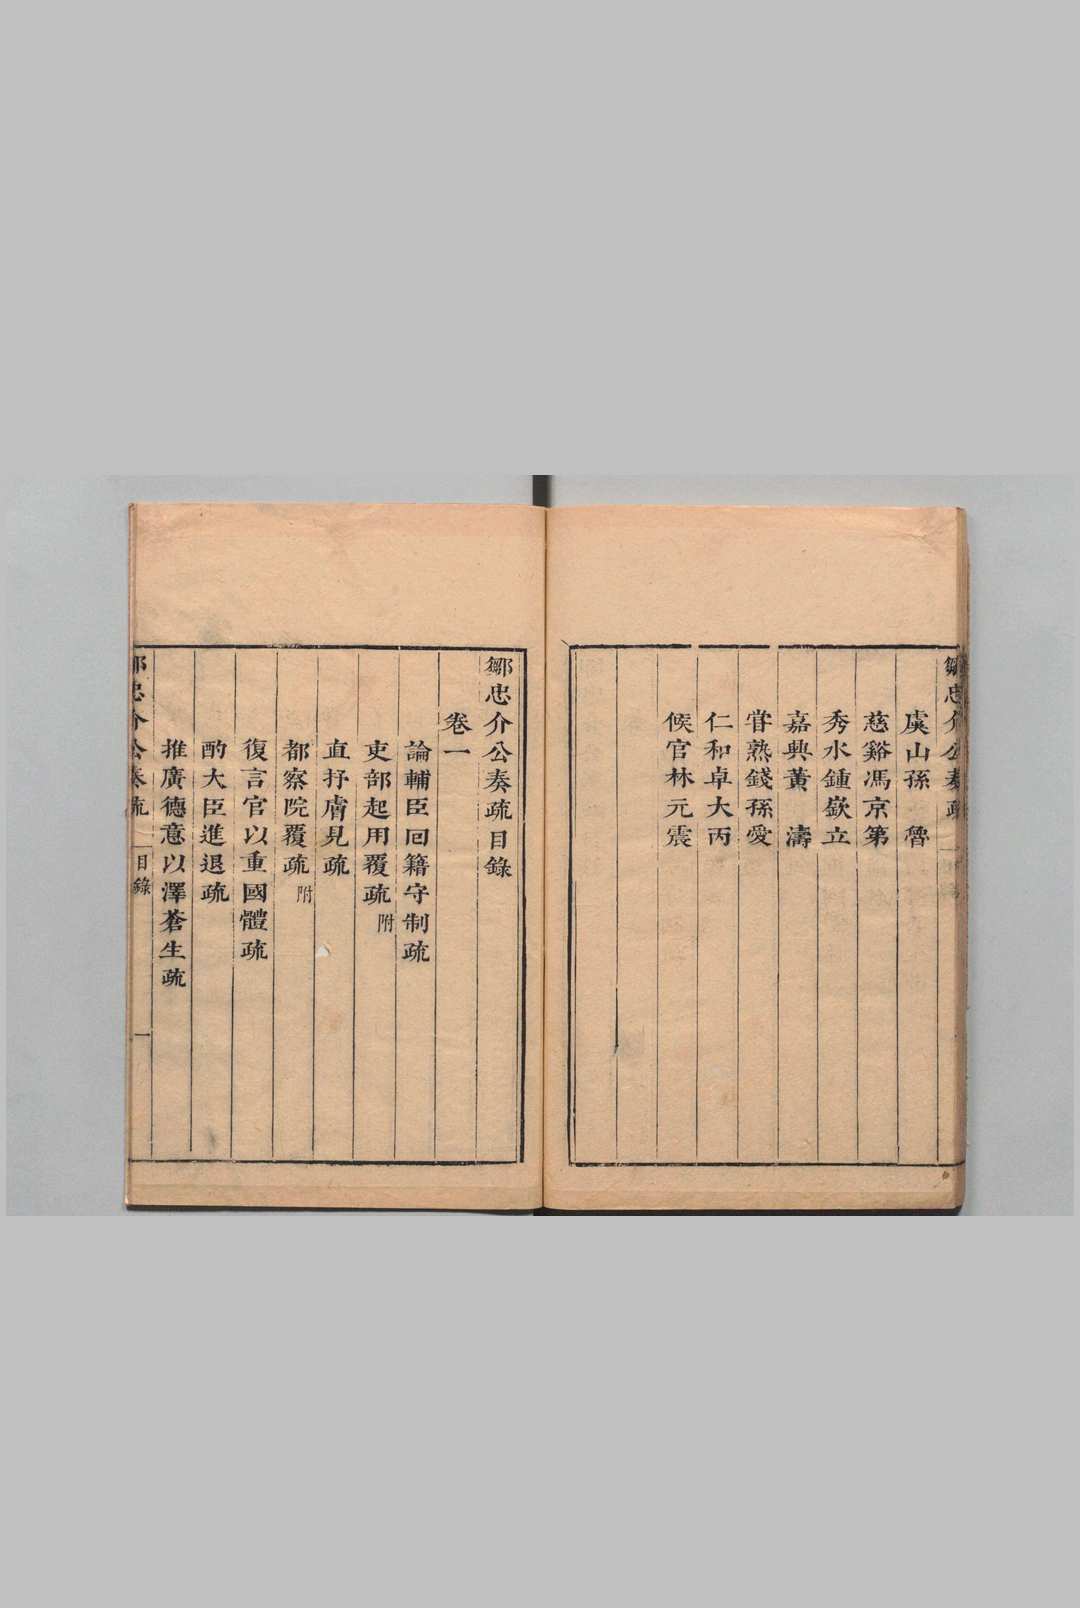 鄒忠介公奏疏
虞山孫 魯
慈谿馮京第
秀水鍾嶔立
嘉興黃 濤
甞熟錢孫愛
仁和卓大丙
候官林元震
鄒忠介公奏疏目錄
卷一
論輔臣回籍守制疏
吏部起用覆疏附
直抒膚見疏
都察院覆疏附
復言官以重國體疏
酌大臣進退疏
推廣德意以澤蒼生疏
鄒忠介公奏疏 目錄 一